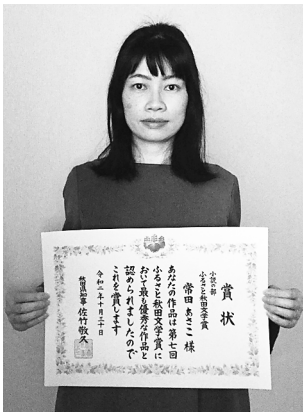 賞状
小説の部
ふるさと秋田文学賞
常田あさこ 様
あなたの作品は第七回
ふるさと秋田文学賞に
おいて最も優秀な作品と
認められましたので
これを賞します
令和二年十月三十日
秋田県知事 佐竹敬久